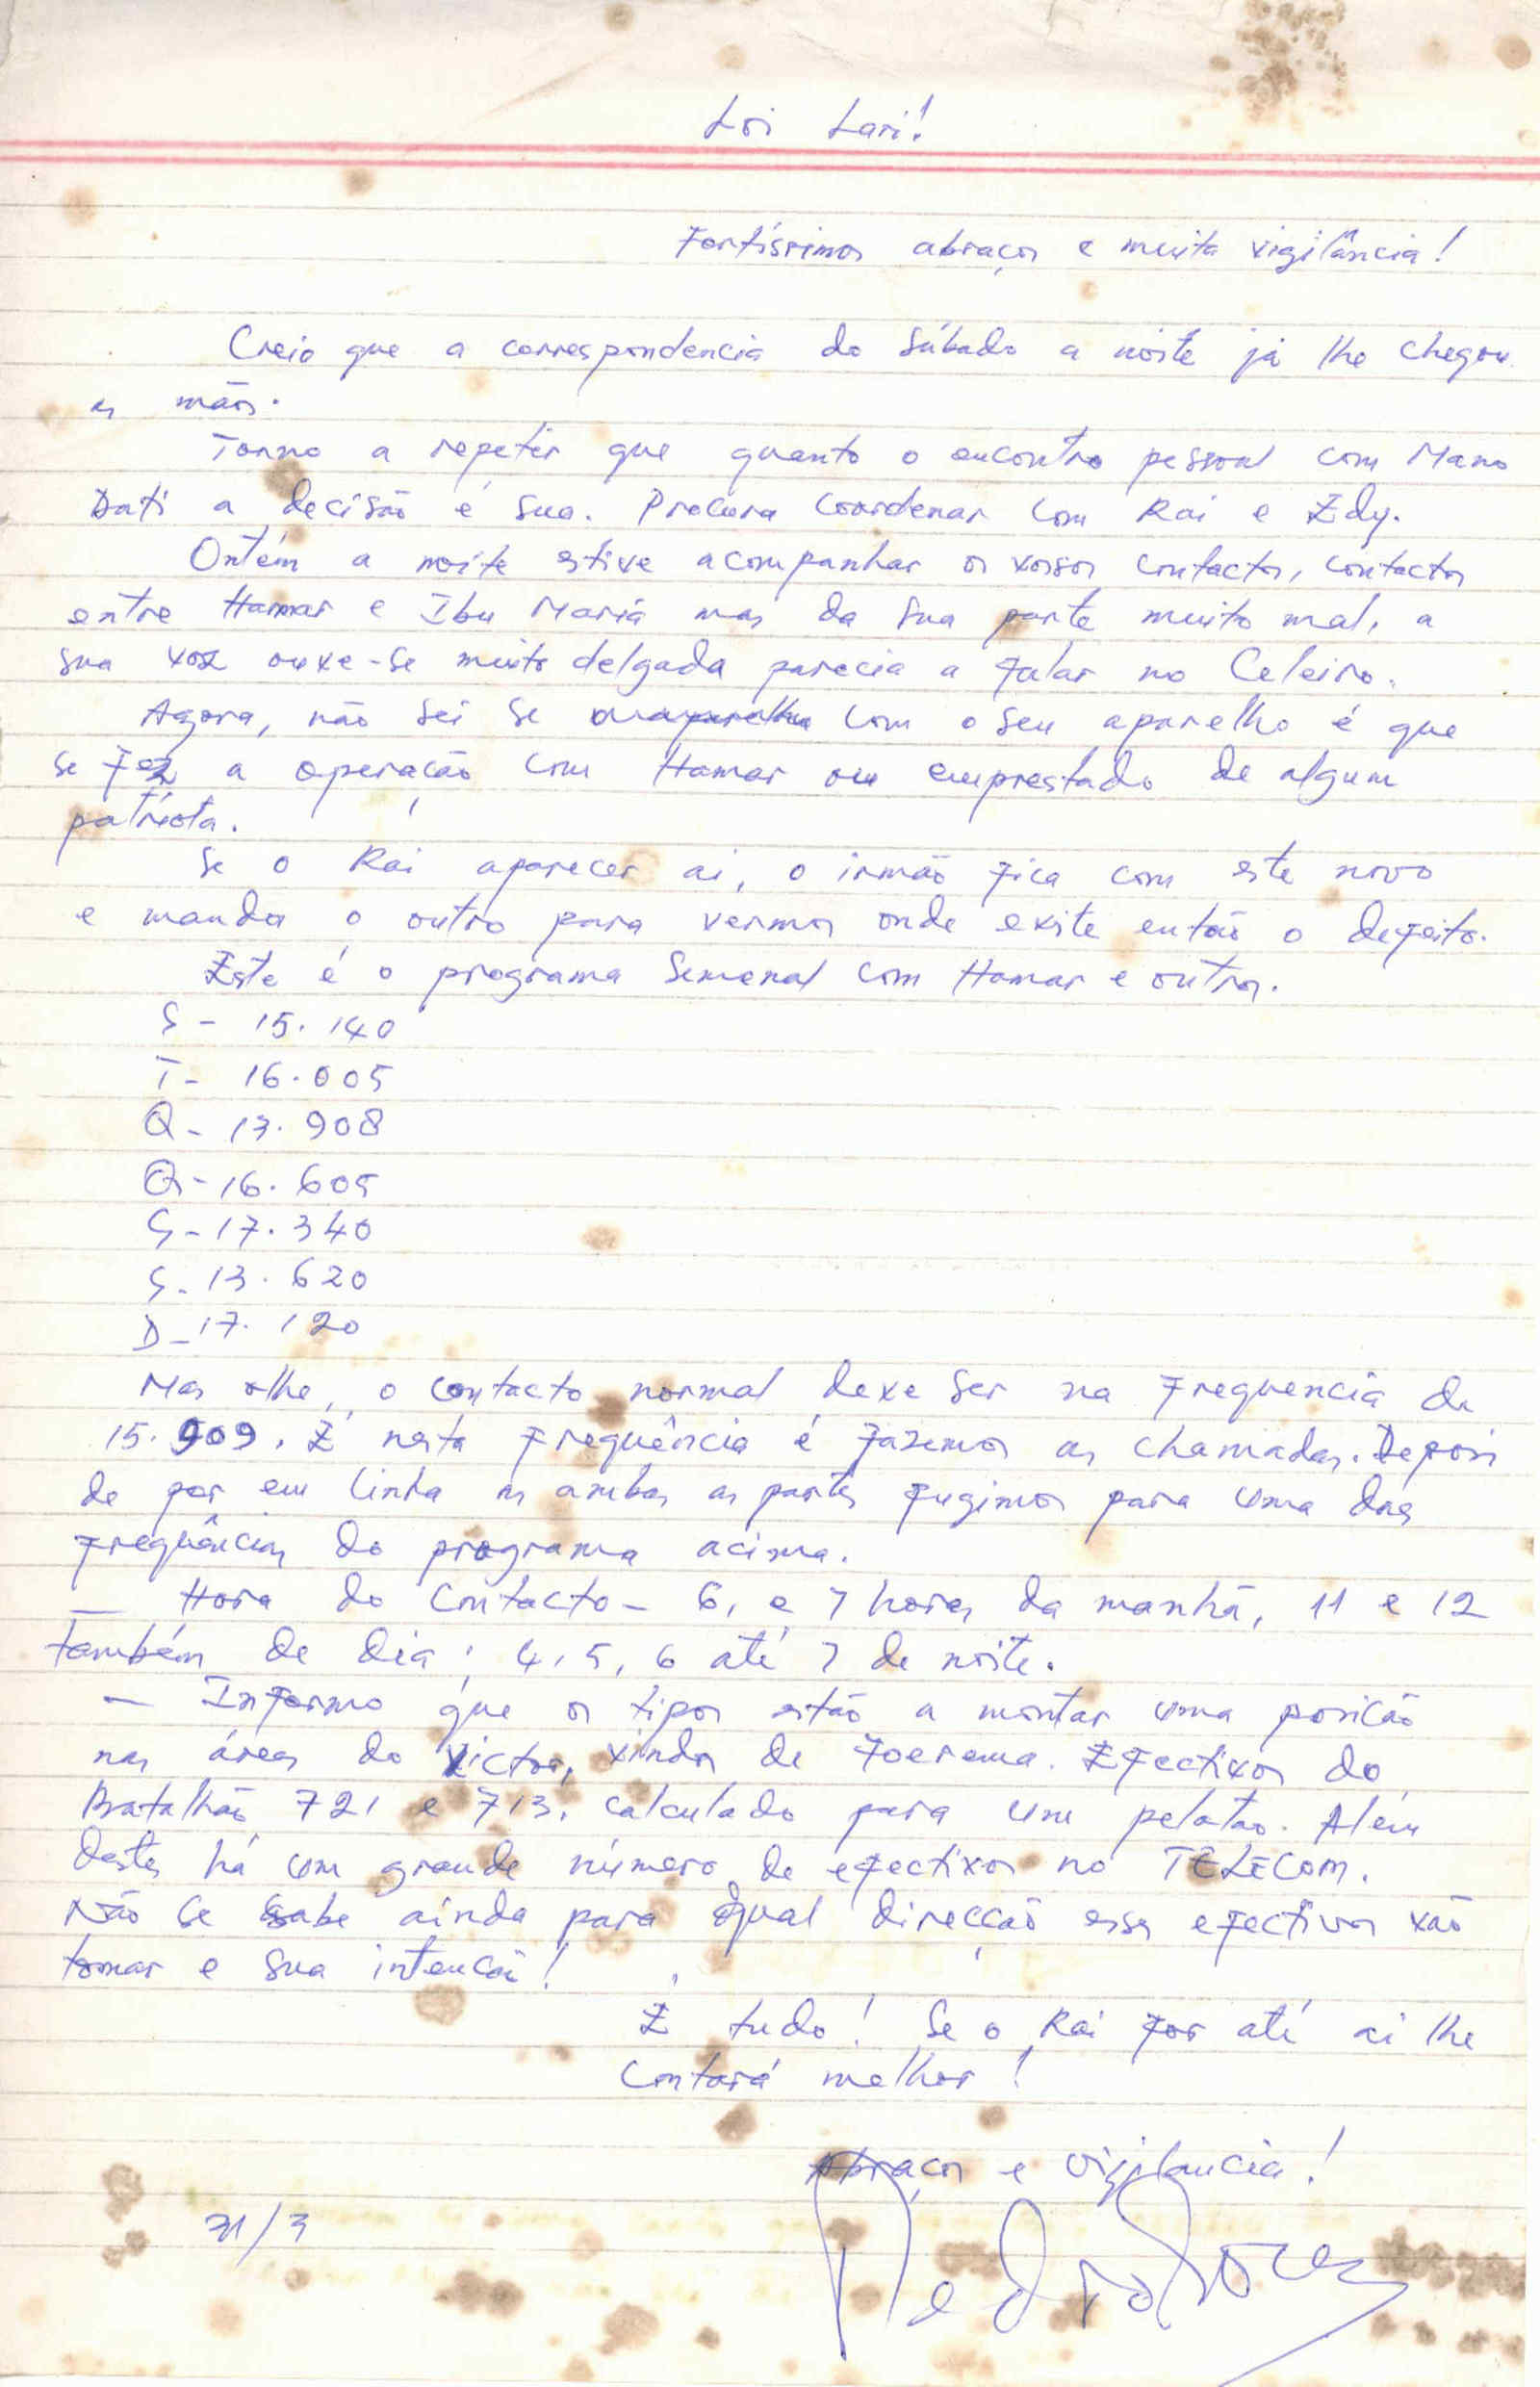 Loi Lari!
Fortíssimos abraços e muita vigilância!
Creio que a correspondencia do Sábado a noite já lhe chegou
as mãos.
Torno a repetir que quanto o encontro pessoal com Mano
Dati a decisão é sua. Procura coordenar com Rai e Edy.
Ontém a noite estive acompanhar os vossos contactos, contactos
entre Hamar e Ibu Mariá mas da sua parte muito mal, a
sua voz ouve-se muito delgada parecia a falar no Celeiro.
Agora, não sei se com o seu aparelho é que
se fez a operação com Hamar ou emprestado de algum
patriota.
Se o Rai aparecer ai, o irmão fica com este novo
e manda o outro para vermos onde exite então o defeito.
Este é o programa Semanal com Hamar e outros.
S - 15.140
T - 16.005
Q - 13.908
Q - 16.605
S - 17.340
S - 13.620
D - 17.120
Mas olhe, o contacto normal deve ser na frequencia de
15.909. É nesta frequência é fazemos as chamadas. Depois
de por em linha as ambas as partes fugimos para uma das
frequências do programa acima.
— Hora do Contacto - 6, e 7 horas da manhã, 11 e 12
também de dia; 4, 5, 6 até 7 de noite.
— Informo que os tipos estão a montar uma posição
nas áreas do Victor, vindos de Foerema. Efectivos do
Batalhão 721 e 713. calculado para um pelotão. Além
destes há um grande número de efectivos no TELECOM.
Não se sabe ainda para qual direcção esses efectivos vão
tomar e sua intenção!
É tudo! Se o Rai for até ai lhe
contará melhor!
Abraços e vigilancia!
31/3